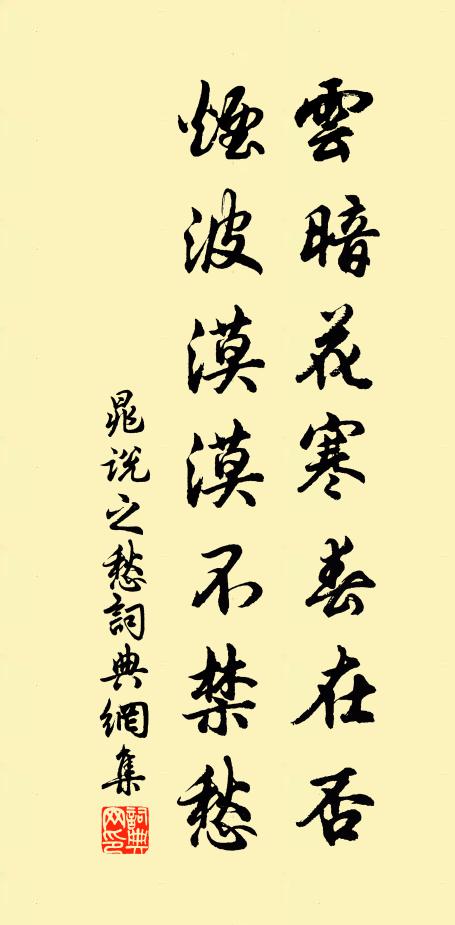 雲暗花寒春在否
煙波漠漠不禁愁
晁说之愁詞典網集
詞典网印